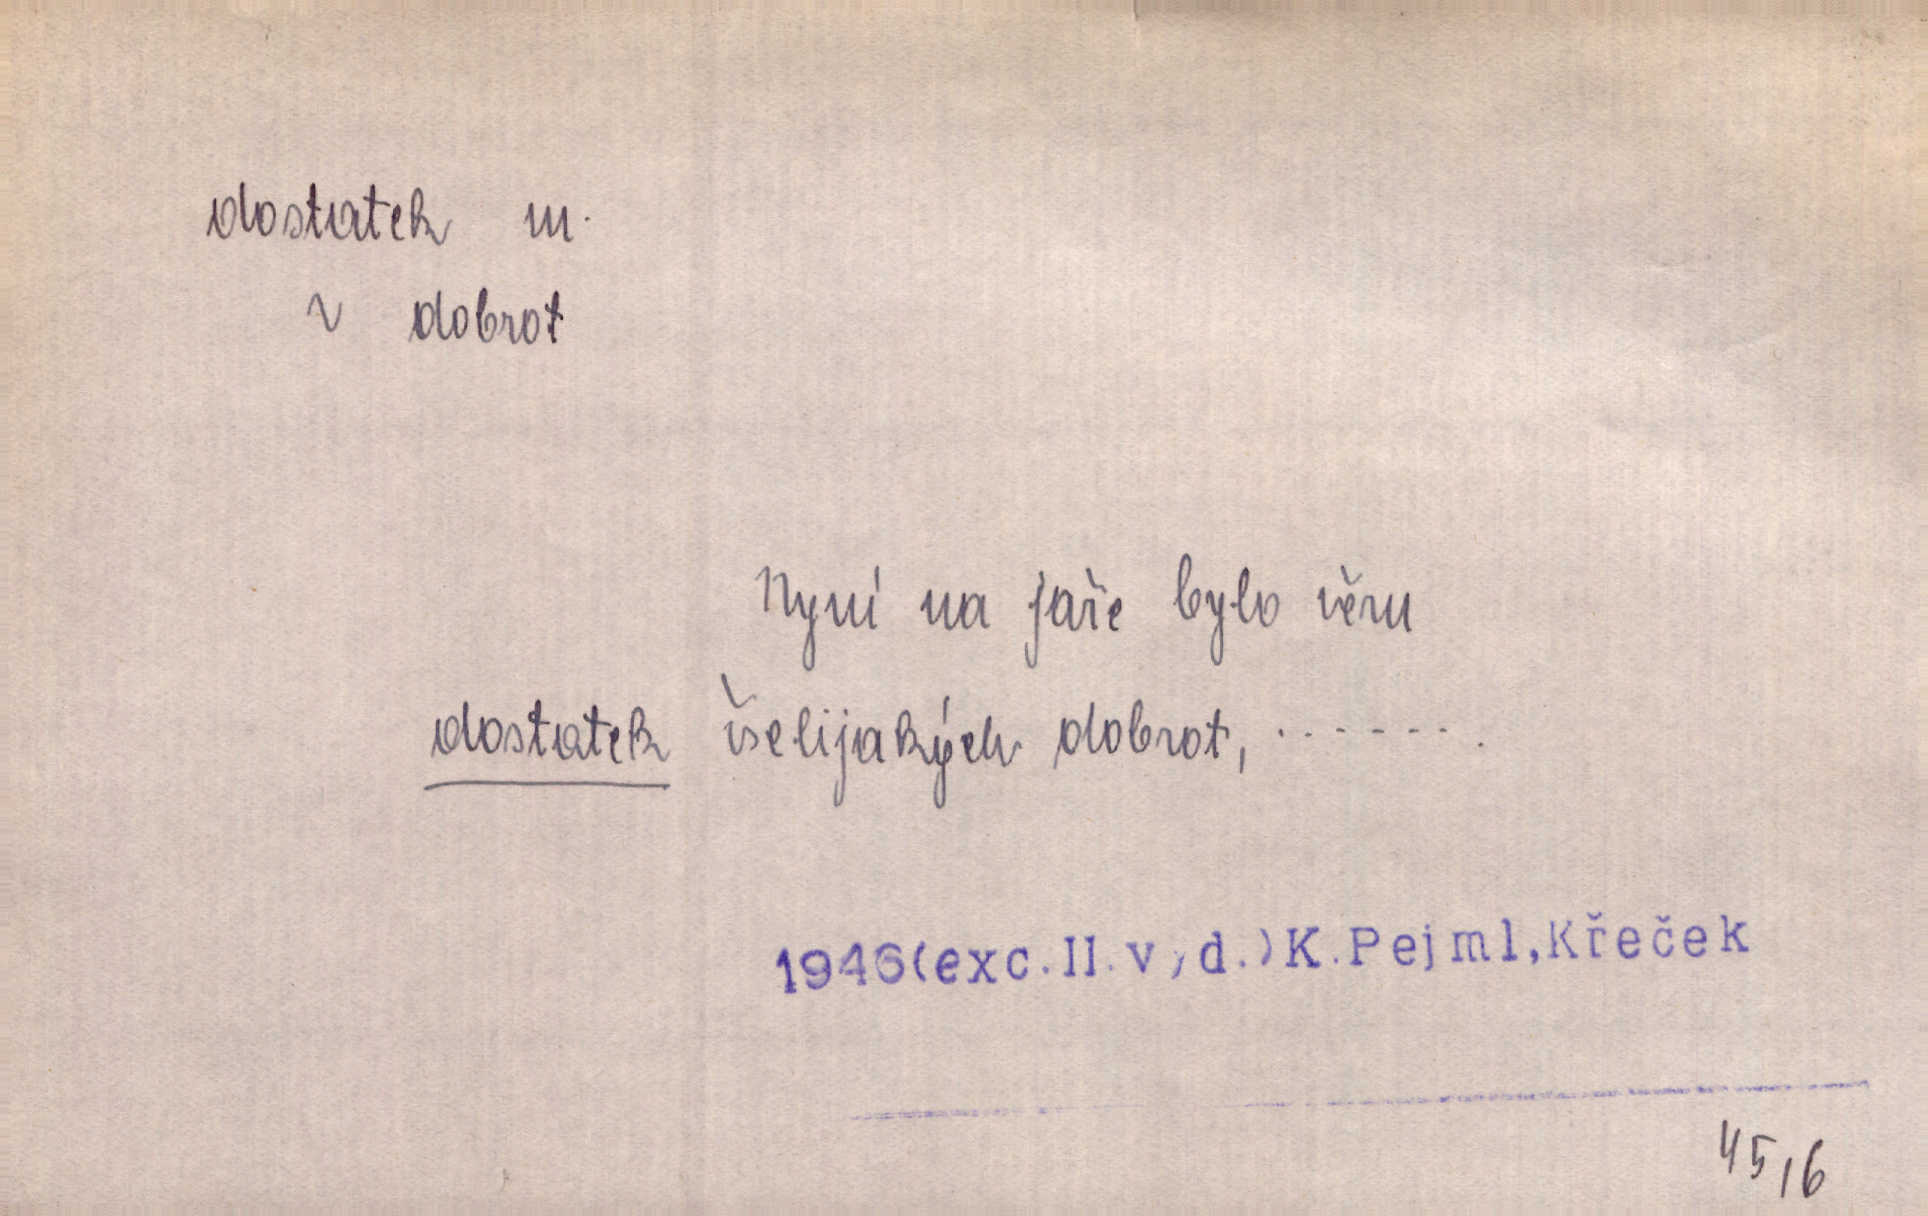 dostatek m.
~ dobrot
Nyní na jaře bylo věru
dostatek všelijakých dobrot, .......
1946(exc.II.v,d.)K.Pejml,Křeček
45,6